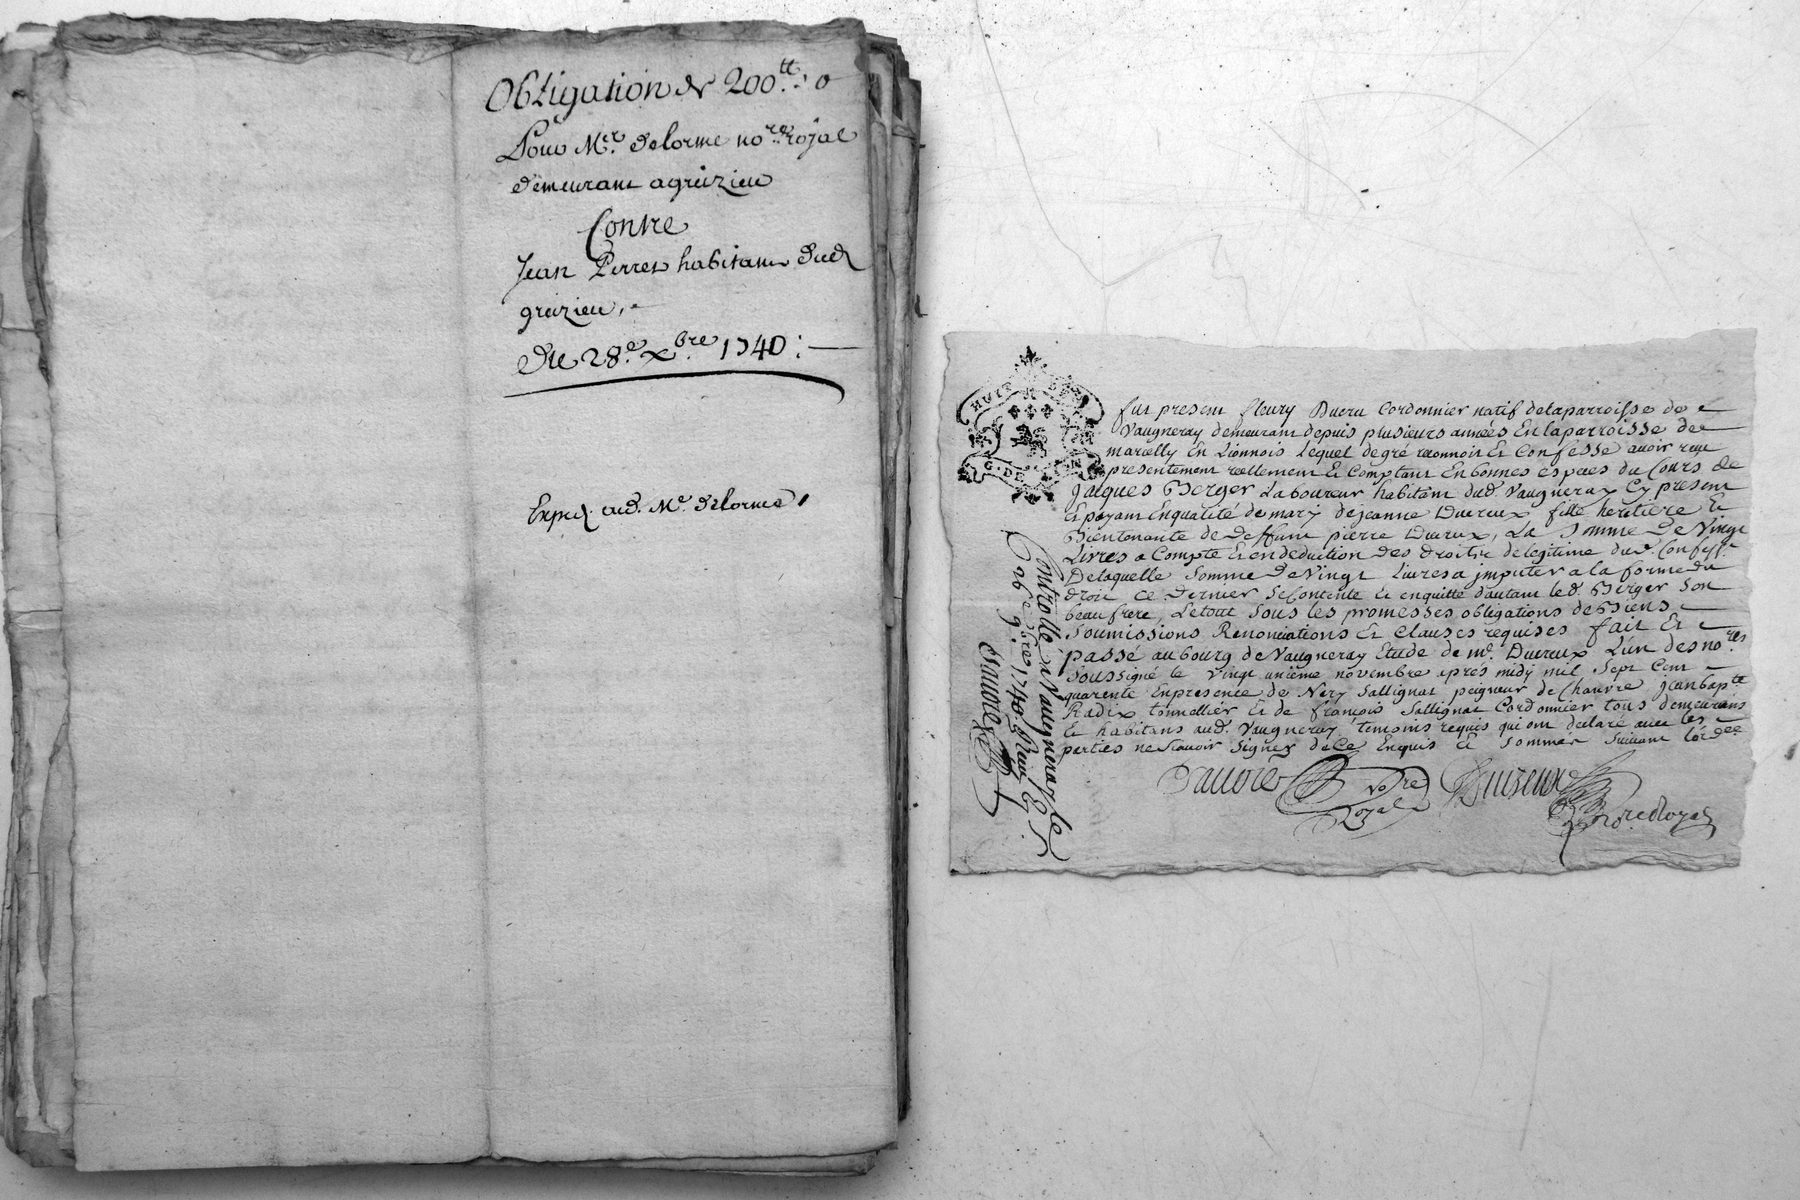 Obligation de 200 tt: o
Pour Mer. Delorme nore. royal
demeurant a greizieu
Contre
Jean Perret habitant dud.
greizieu,
Du 28e. xbre 1740:
Exped. aud. Me. Delorme
HUIT DEN
G. DE N
fut present fleury Dueru Cordonnier natif delaparroisse de
Vaugneray demeurant depuis plusieurs années En laparroisse de
marcelly En Lionnois Lequel degré reconnoit Et Confesse avoir reçu
presentement reellement Et Comptant En bonnes especes du Cours de
Jacques Berger Laboureur habitant dud. Vaugneray Cy present
Et payant Enqualité de mary dejeanne Duerux fille heritiere Et
Bientenante de deffunt pierre Duerux, La Somme De Vingt
Livres a Compte Et en deduction des droits de legitime dud. Confess.
Delaquelle Somme De Vingt Livres a jmputer a la forme du
droit Ce Dernier se Contente Et enquitte dautant led. Berger Son
beau frere, Letout Sous les promesses obligations de Biens
Soumissions Renonciations Et Clauses requises fait Et
passé au bourg de Vaugneray Etude de me. Duerux L'un des nores
Soussigné le Vingt unième novembre aprés midy mil Sept Cent
quarente Enpresence de Nery Sallignat peigneur de Chanvre jean bapte
Radix tonnellier Et de françois Sallignat Cordonnier tous demeurans
Et habitans aud. Vaugneray temoins requis qui ont declaré avec les
parties ne Scavoir Signer de Ce Enquis Et Sommés Suivant l'ordce
nore
Royal
nore Royal
Controllé a Vaugneray le
26e 9bre 1740. Reçu